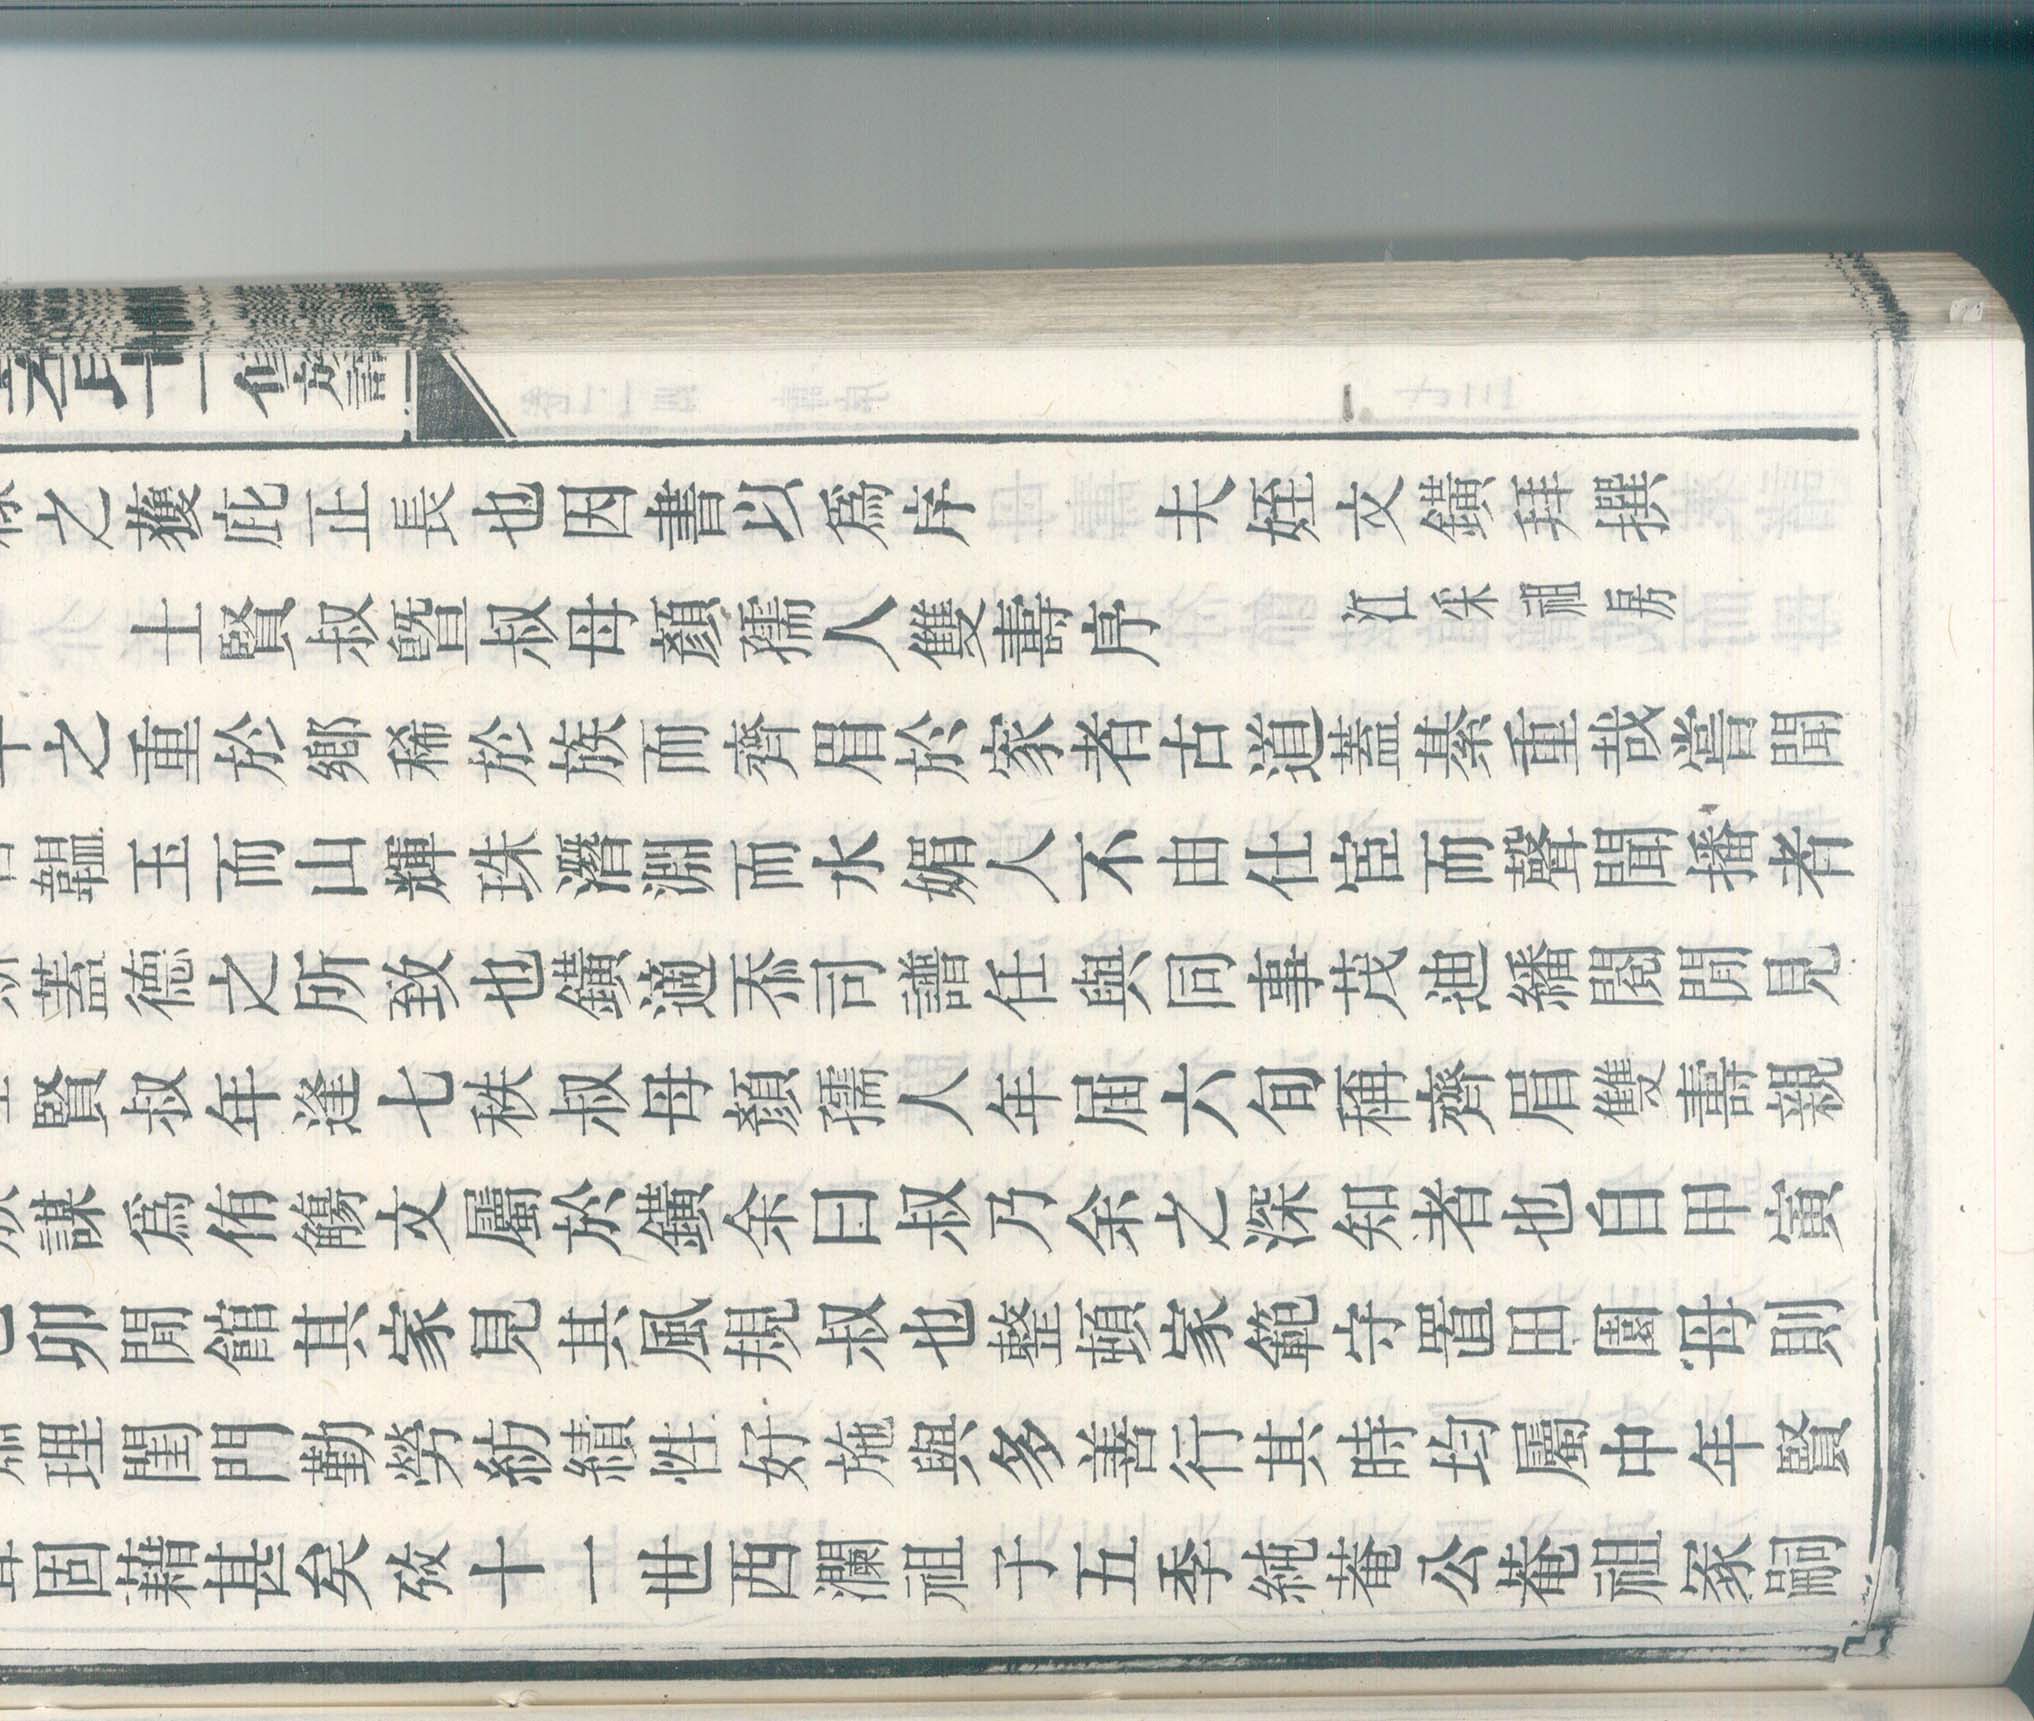 二修族譜
之獲庇正長也因書以爲序 夫姪文鐄拜撰
士賢叔曁叔母顔孺人雙壽序 江采祖房
之重於鄉稀於族而齊眉於家者古道蓋綦重哉嘗聞
韞玉而山輝珠潛淵而水媚人不由仕宦而聲聞播者
蓋德之所致也鐄適忝司譜任與同事茂迪繙閱閒見
賢叔年逢七秩叔母顔孺人年届六旬稱齊眉雙壽親
謀爲侑觴文屬於鐄余曰叔乃余之深知者也自甲寅
卯閒館其家見其風規叔也整頓家範守置田園母則
理閨門勤勞紡績性好施與多善行其時均屬中年賢
固藉甚矣攷十一世西瀾祖子五季純菴公菴祖冢嗣